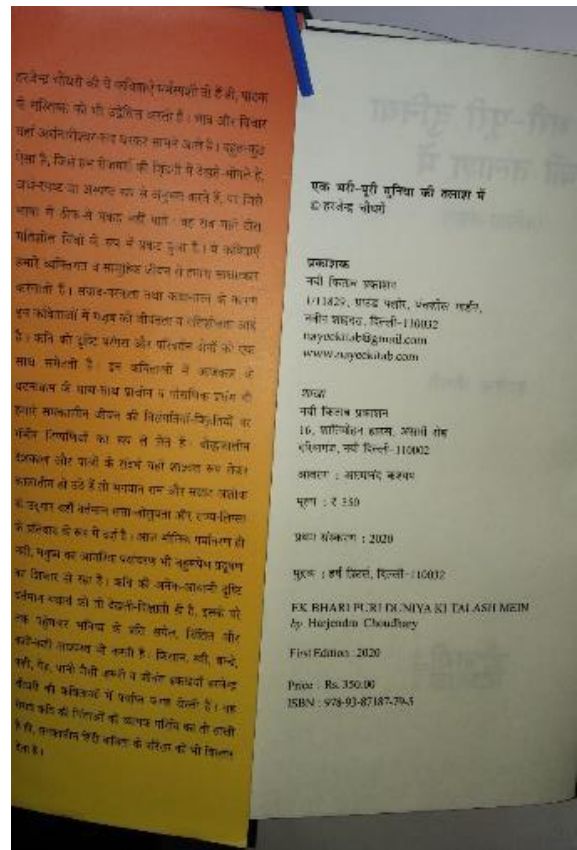 हरजेन्द्र चौधरी की ये कविताएँ मर्मस्पर्शी तो हैं ही, पाठक
के मस्तिष्क को भी उद्वेलित करती हैं। भाव और विचार
यहाँ अर्धनारीश्वर-रूप धरकर सामने आते हैं। बहुत-कुछ
ऐसा है, जिसे हम रोज़मर्रा की ज़िन्दगी में देखते-भोगते हैं,
अर्ध-स्पष्ट या अस्पष्ट रूप से अनुभव करते हैं, पर जिसे
भाषा में ठीक-से पकड़ नहीं पाते। वह सब यहाँ ठोस
गतिशील बिंबों के रूप में प्रकट हुआ है। ये कविताएँ
हमारे व्यक्तिगत व सामूहिक जीवन से हमारा साक्षात्कार
करवाती हैं। संवाद-परकता तथा कथात्मकता के कारण
इन कविताओं में की जीवंतता व गतिशीलता आई
है। कवि की दृष्टि परंपरा और परिवर्तन दोनों को एक
साथ समेटती है। इन कविताओं में आजकल के
घटनाक्रम के साथ-साथ प्राचीन व पौराणिक प्रसंग भी
हमारे समकालीन जीवन की विसंगतियों-विकृतियों पर
गंभीर टिप्पणियों का रूप ले लेते हैं।
और पात्रों के संदर्भ यहाँ शाश्वत रूप लेकर
कालातीत हो उठे हैं तो भगवान राम और सम्राट अशोक
के उद्गार यहाँ वर्तमान सत्ता-लोलुपता और राज्य-लिप्सा
के प्रतिवाद के रूप में दर्ज हैं। आज भौतिक पर्यावरण ही
नहीं, मनुष्य का आंतरिक पर्यावरण भी प्रदूषण
का शिकार हो रहा है। कवि की अनेक-आयामी दृष्टि
वर्तमान यथार्थ को तो देखती-दिखाती ही है, इसके परे
तक पहुँचकर भविष्य के प्रति सचेत, चिंतित और
भी करती है। किसान, स्त्री, बच्चे,
पक्षी, पेड़, पानी जैसी ज़रूरी व हरजेन्द्र
चौधरी की कविताओं में पर्याप्त जगह घेरती हैं। यह
कवि की चिंताओं की व्यापक परिधि का तो
है ही, समकालीन हिंदी कविता के परिसर को भी विस्तार
देता है।
एक भरी-पूरी दुनिया की तलाश में
© हरजेन्द्र चौधरी
प्रकाशक
नयी किताब प्रकाशन
1/11829, ग्राउंड फ्लोर, पंचशील गार्डन,
नवीन शाहदरा, दिल्ली-110032
nayeekitab@gmail.com
www.nayeekitab.com
शाखा
नयी किताब प्रकाशन
16, हाउस, अंसारी रोड
दरियागंज, नयी दिल्ली-110002
आवरण : कश्यप
मूल्य : ₹ 350
प्रथम संस्करण : 2020
मुद्रक : हर्ष प्रिंटर्स, दिल्ली-110032
EK BHARI PURI DUNIYA KI TALASH MEIN
by Harjendra Choudhary
First Edition : 2020
Price : Rs. 350.00
ISBN : 978-93-87187-79-5